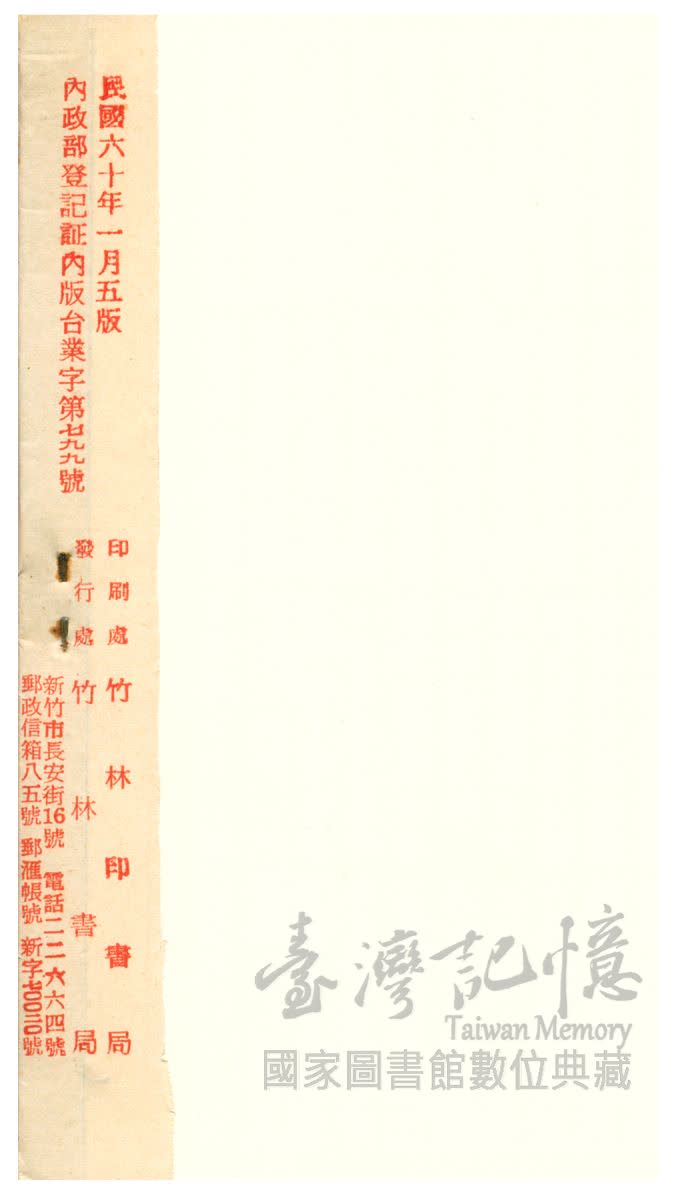 民國六十年一月五版
內政部登記証內版台業字第七九九號
印刷處 竹林印書局
發行處 竹林書局
新竹市長安街16號 電話二二六六四號
郵政信箱八五號 郵滙帳號 新字七〇〇二〇號
臺灣記憶
Taiwan Memory
國家圖書館數位典藏